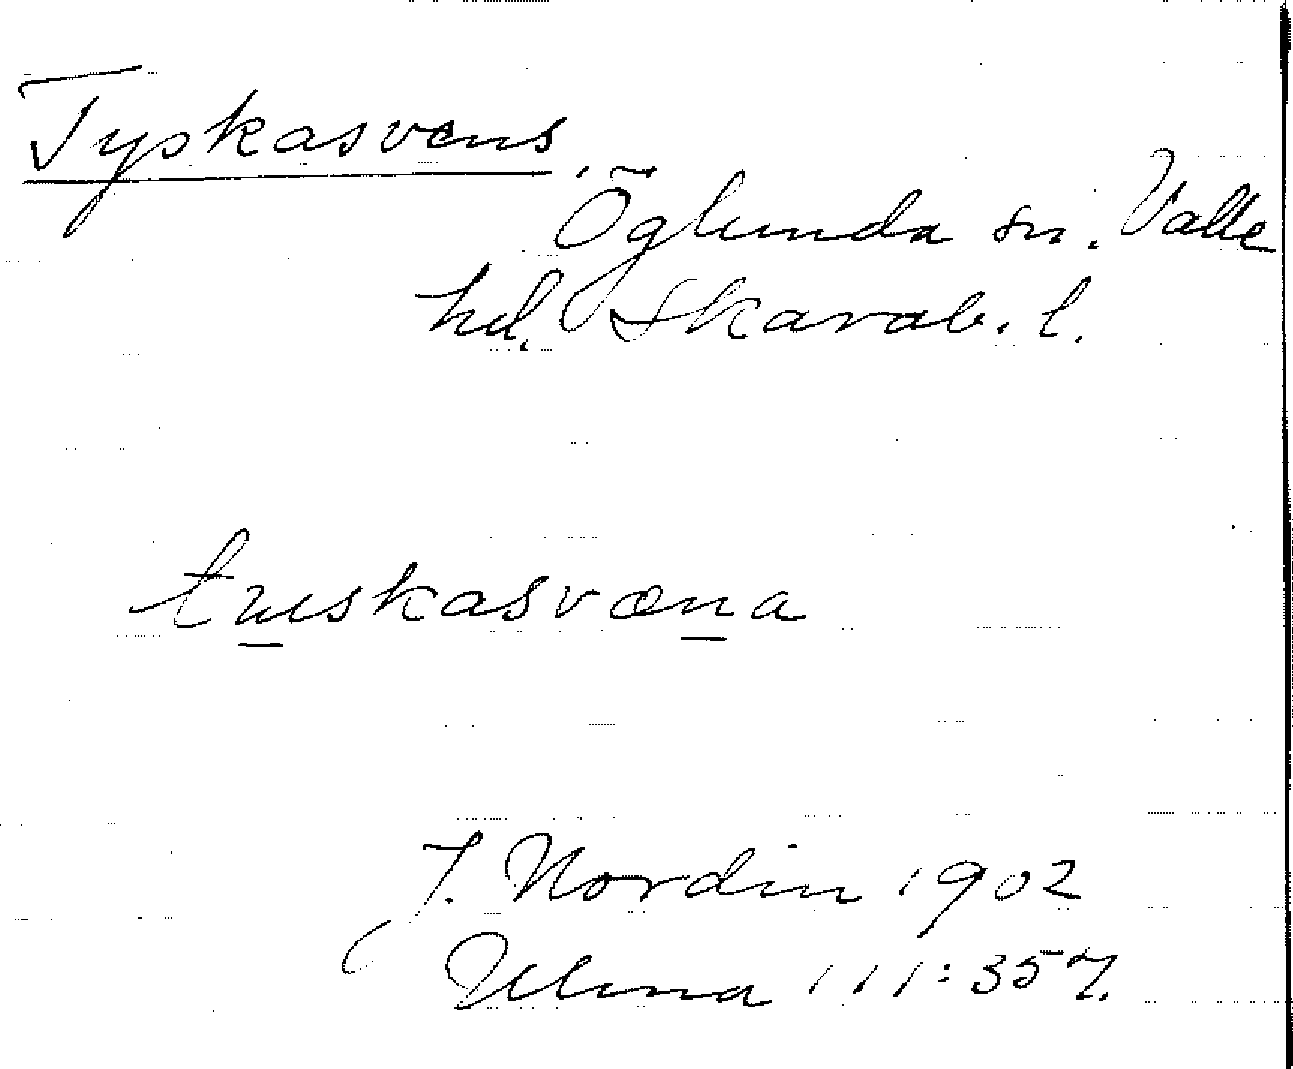 Tyskasvens
Öglunda sn. Valle
hd. Skarab. l.
tuskasvæna
J. Nordin 1902
Ulma 111:357.